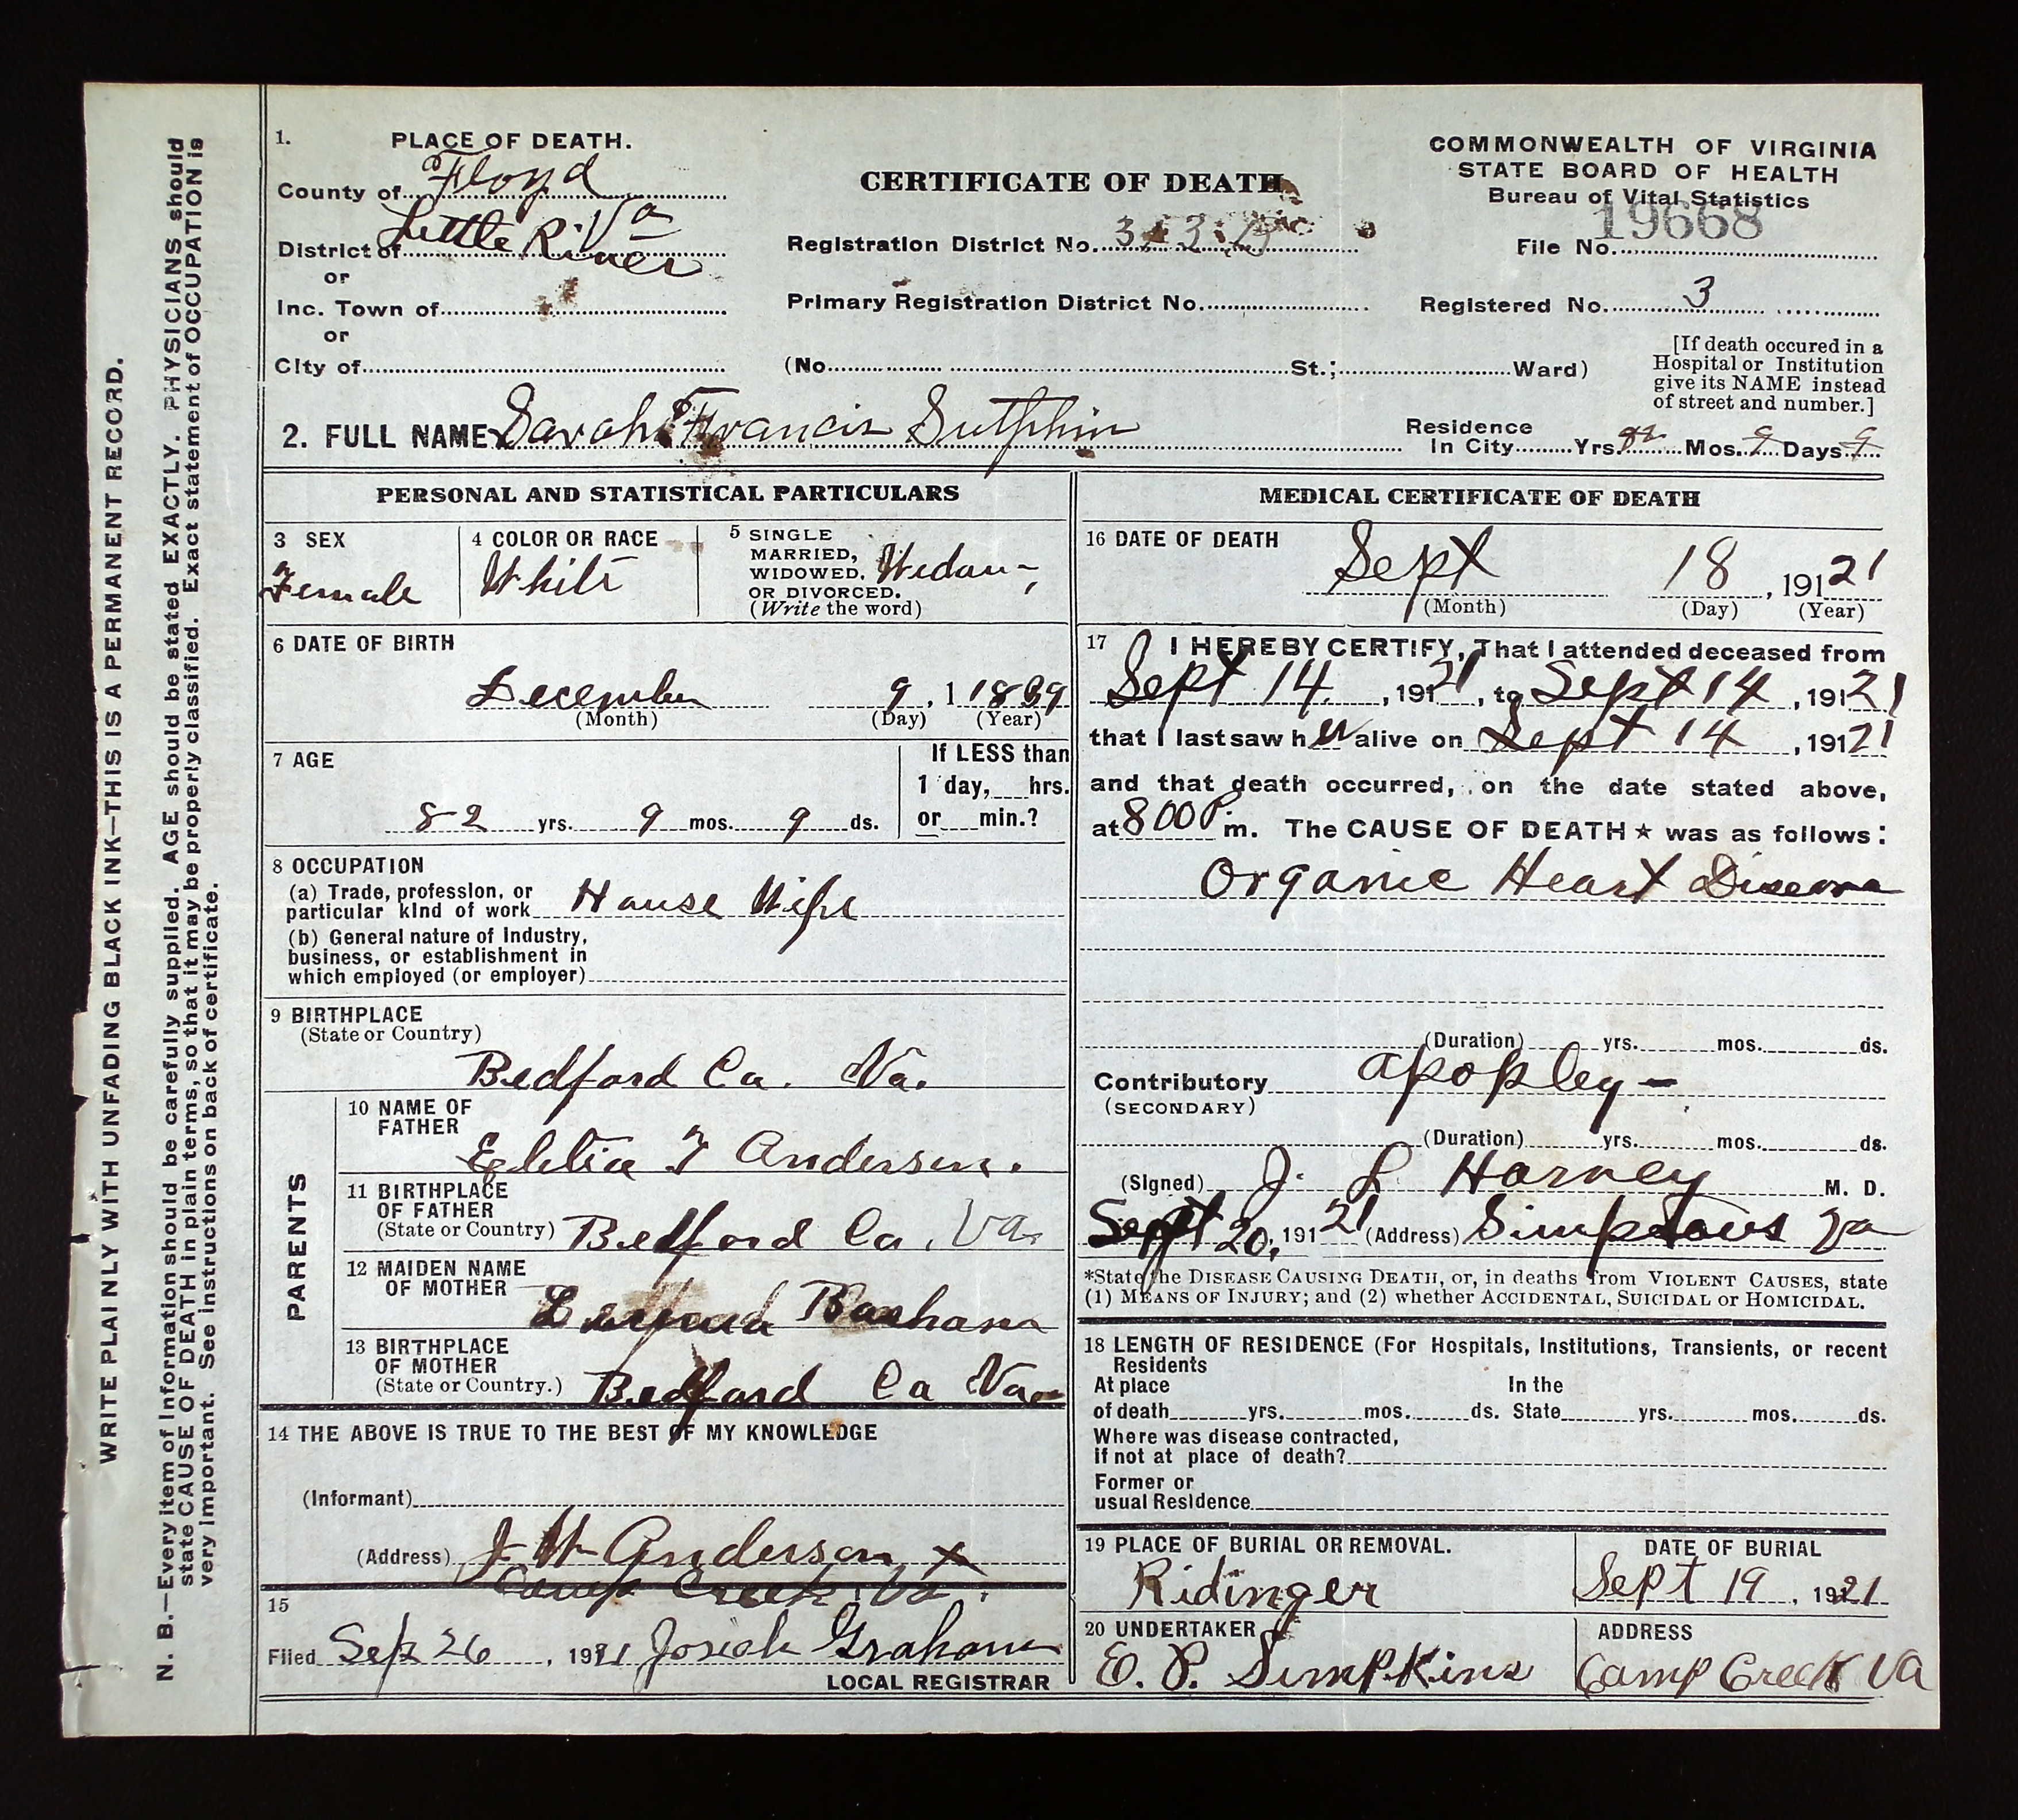 WRITE PLAINLY WITH UNFADING BLACK INK—THIS IS A PERMANENT RECORD.
N. B.—Every item of information should be carefully supplied. AGE should be stated EXACTLY. PHYSICIANS should
state CAUSE OF DEATH in plain terms, so that it may be properly classified. Exact statement of OCCUPATION is
very important. See instructions on back of certificate.
1. PLACE OF DEATH.
County of Floyd
Va
District of Little River
or
Inc. Town of
or
City of
CERTIFICATE OF DEATH
Registration District No.
Primary Registration District No.
(No. St.; Ward)
COMMONWEALTH OF VIRGINIA
STATE BOARD OF HEALTH
Bureau of Vital Statistics
19668
File No.
Registered No. 3
[If death occured in a
Hospital or Institution
give its NAME instead
of street and number.]
2. FULL NAME Sarah Francis Sutphin
Residence
In City Yrs. 82 Mos. 9 Days 9
PERSONAL AND STATISTICAL PARTICULARS
3 SEX
Female
4 COLOR OR RACE
White
5 SINGLE
MARRIED,
WIDOWED,
OR DIVORCED.
(Write the word)
6 DATE OF BIRTH
December 9, 1 1839
(Month) (Day) (Year)
7 AGE
82 yrs. 9 mos. 9 ds.
If LESS than
1 day, hrs.
or min.?
8 OCCUPATION
(a) Trade, profession, or
particular kind of work House Wife
(b) General nature of Industry,
business, or establishment in
which employed (or employer)
9 BIRTHPLACE
(State or Country)
Bedford Co. Va.
PARENTS
10 NAME OF
FATHER
F Anderson.
11 BIRTHPLACE
OF FATHER
(State or Country) Bedford Co. Va.
12 MAIDEN NAME
OF MOTHER
13 BIRTHPLACE
OF MOTHER
(State or Country.) Bedford Co Va
14 THE ABOVE IS TRUE TO THE BEST OF MY KNOWLEDGE
(Informant)
(Address) J W Anderson x
Camp Creek Va.
15
Filed Sep 26, 1921 Josiah Graham
LOCAL REGISTRAR
MEDICAL CERTIFICATE OF DEATH
16 DATE OF DEATH
Sept 18, 191 21
(Month) (Day) (Year)
17 I HEREBY CERTIFY, That I attended deceased from
Sept 14, 191 21, to Sept 14, 191 21
that I last saw her alive on Sept 14, 191 21
and that death occurred, on the date stated above,
at 8 00 P m. The CAUSE OF DEATH★ was as follows:
Organic Heart Disease
(Duration) yrs. mos. ds.
Contributory apopley –
(SECONDARY)
(Duration) yrs. mos. ds.
(Signed) J. L Harvey M. D.
Sept 20, 191 21 (Address) Simpsons Va
*State the DISEASE CAUSING DEATH, or, in deaths from VIOLENT CAUSES, state
(1) MEANS OF INJURY; and (2) whether ACCIDENTAL, SUICIDAL or HOMICIDAL.
18 LENGTH OF RESIDENCE (For Hospitals, Institutions, Transients, or recent
Residents
At place In the
of death yrs. mos. ds. State yrs. mos. ds.
Where was disease contracted,
if not at place of death?
Former or
usual Residence
19 PLACE OF BURIAL OR REMOVAL.
Ridinger
DATE OF BURIAL
Sept 19, 1921
20 UNDERTAKER
E. P. Simpkins
ADDRESS
Camp Creek Va